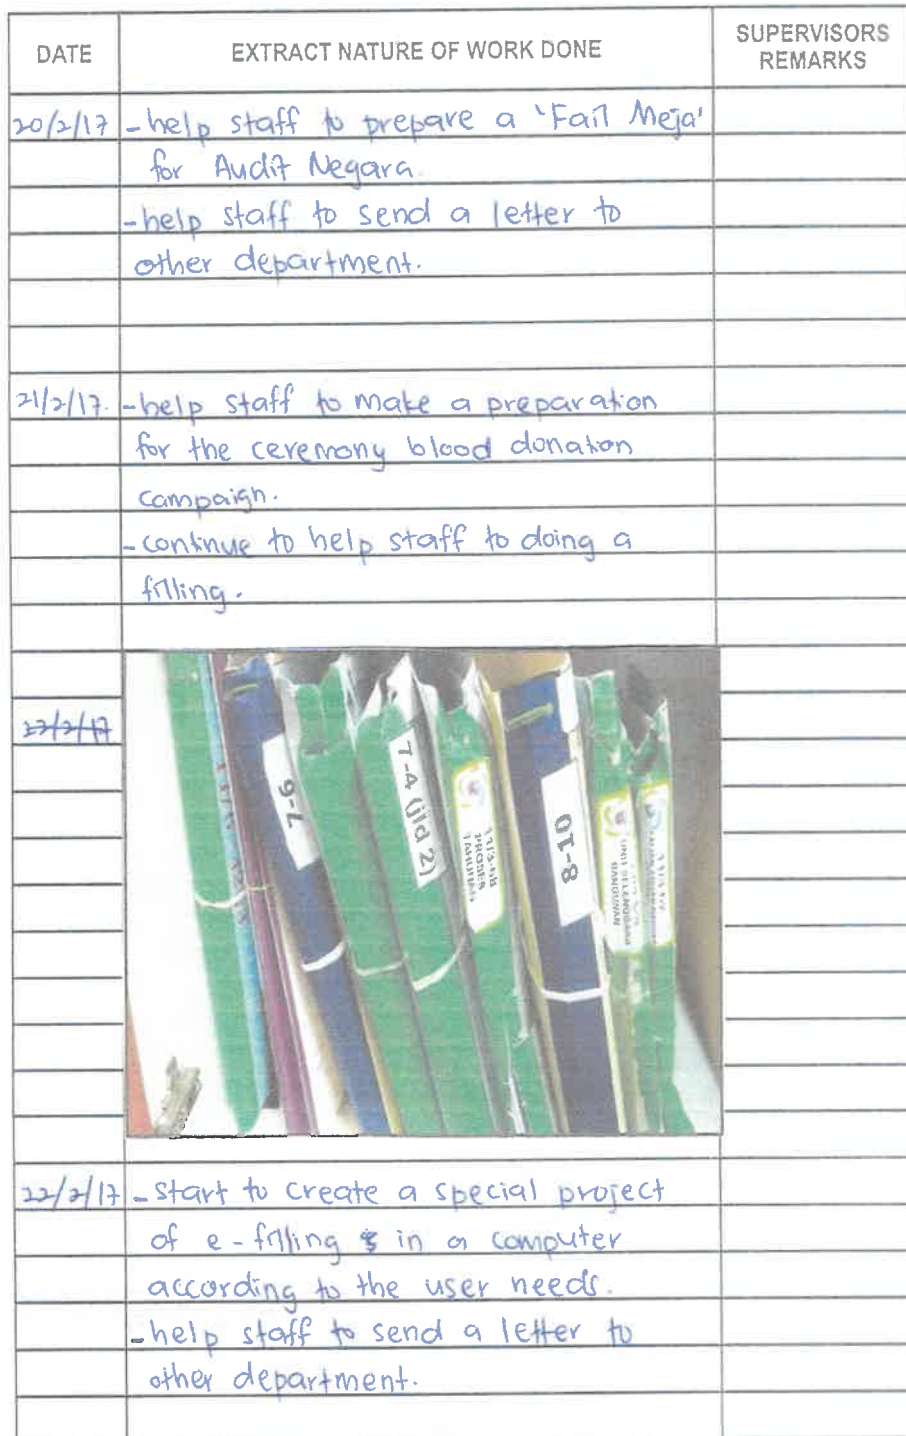 DATE
EXTRACT NATURE OF WORK DONE
SUPERVISORS
REMARKS
20/2/17 - help staff to prepare a 'Fail Meja'
for Audit Negara.
- help staff to send a letter to
other department.
21/2/17. - help staff to make a preparation
for the ceremony blood donation
campaign.
- continue to help staff to doing a
filling.
22/2/17
7-6
7-4 (jld 2)
PROSES
8-10
UNIT SELENGGARA
BANGUNAN
22/2/17 - start to create a special project
of e-filling in a computer
according to the user needs.
- help staff to send a letter to
other department.